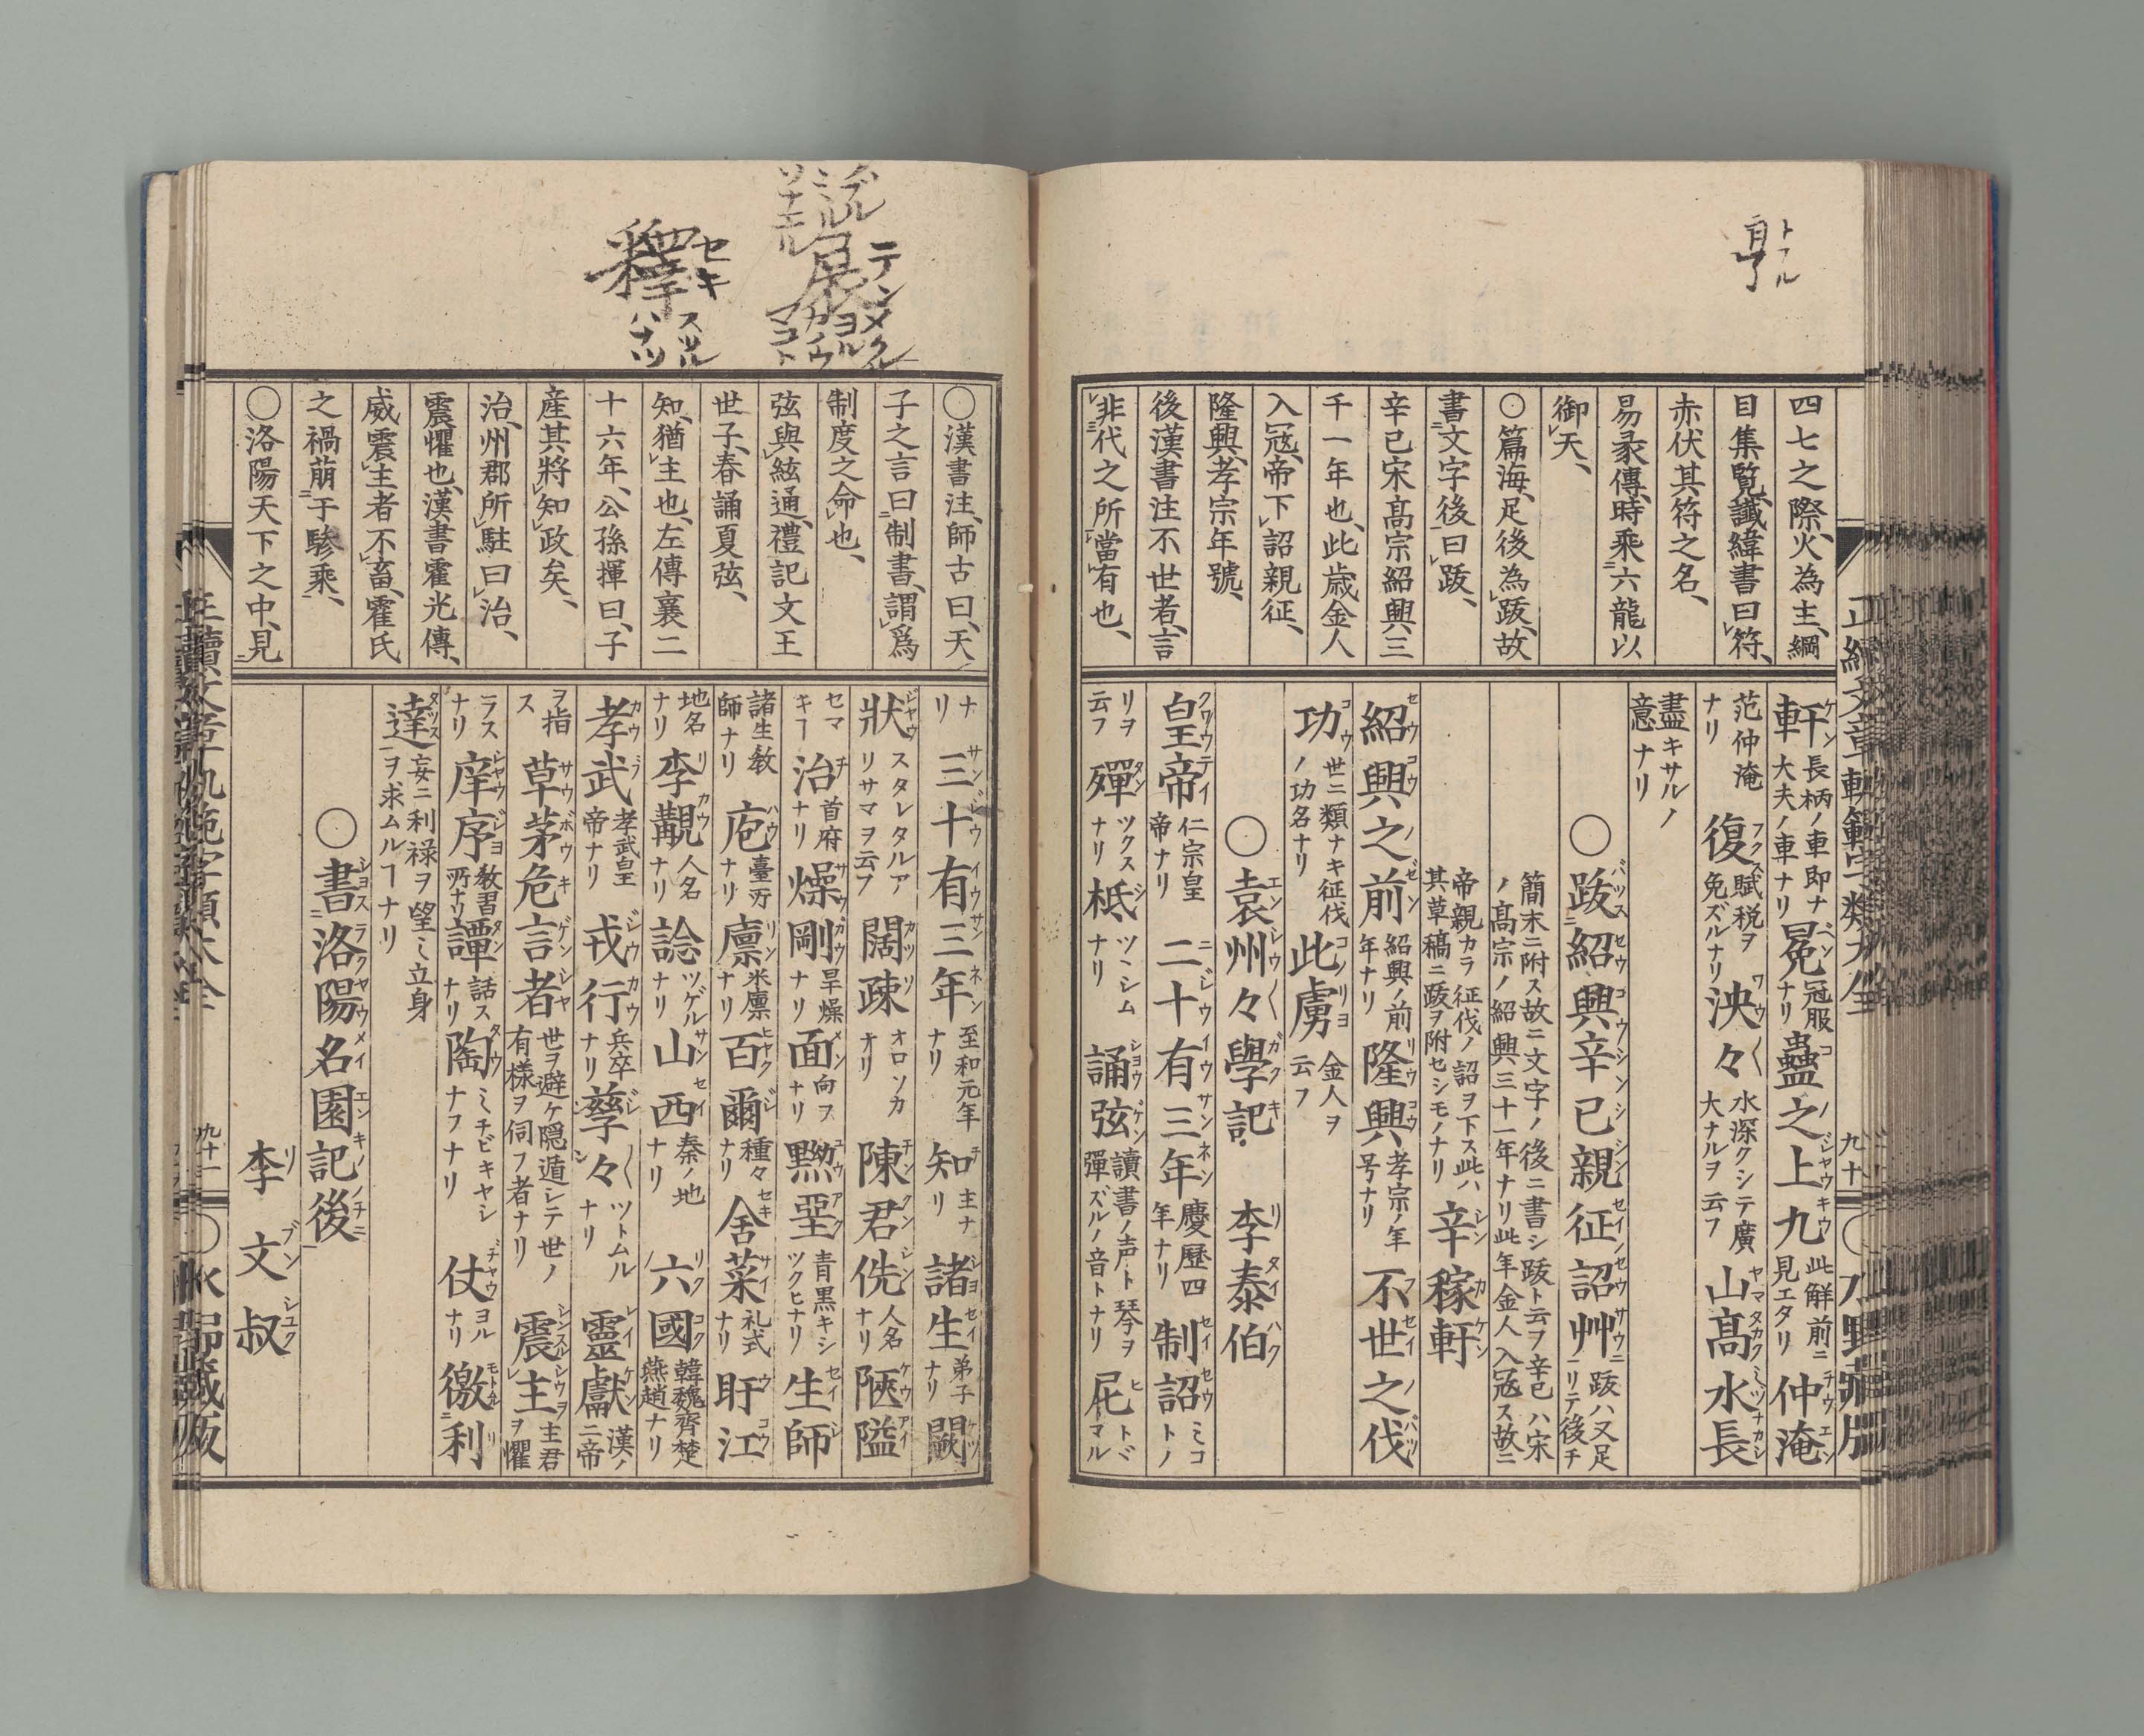 亨
トフル
四七之際、火為主、綱
目集覧、讖緯書曰、符、
赤伏其符之名、
易彖傳、時乘六龍以
御天、
○篇海、足後為跋、故
書文字後曰跋、
辛巳宋髙宗紹興三
千一年也、此歳金人
入寇、帝下詔親征、
隆興、孝宗年號、
後漢書注不世者、言
非代之所當有也、
軒 長柄ノ車即ナ大夫ノ車ナリ 冕 冠服ナリ 蠱之上九 此解前ニ見エタリ 仲淹
范仲淹ナリ 復 賦税ヲ免ズルナリ 泱々 水深クシテ廣大ナルヲ云フ 山髙水長
盡キサルノ意ナリ
○跋紹興辛巳親征詔艸 跋ハ又足リテ後チ
簡末ニ附ス故ニ文字ノ後ニ書シ跋ト云ヲ辛巳ハ宋ノ髙宗ノ紹興三十一年ナリ此年金人入寇ス故ニ
帝親カラ征伐ノ詔ヲ下ス此ハ其草稿ニ跋ヲ附セシモノナリ 辛稼軒
紹興之前 紹興ノ前年ナリ 隆興 孝宗ノ年号ナリ 不世之伐
功 世ニ類ナキ征伐ノ功名ナリ 此虜 金人ヲ云フ
○袁州々學記 李泰伯
皇帝 仁宗皇帝ナリ 二十有三年 慶歴四年ナリ 制詔 ミコトノ
リヲ云フ 殫 ツクスナリ 柢 ツヽシムナリ 誦弦 讀書ノ声ト琴ヲ彈ズルノ音トナリ 屁 トヾマル
九十
テン
展
メクル
ヨル
マコト
セキ
釋
スツル
ハナツ
○漢書注、師古曰、天
子之言曰制書、謂爲
制度之命也、
弦與絃通、禮記文王
世子、春誦夏弦、
知、猶主也、左傳襄二
十六年、公孫揮曰、子
産其將知政矣、
治、州郡所駐曰治、
震懼也、漢書霍光傳、
威震主者不畜、霍氏
之禍萠于驂乘、
○洛陽天下之中、見
ナリ 三十有三年 至和元年ナリ 知 主ナリ 諸生 弟子ナリ 闕
狀 スタレタルアリサマヲ云フ 闊疎 オロソカナリ 陳君侁 人名ナリ 陜隘
セマキー 治 首府ナリ 燥剛 旱燥ナリ 面 向フナリ 黝堊 青黒キシツクヒナリ 生師
諸生教師ナリ 庖 臺所ナリ 廩 米廩ナリ 百爾 種々ナリ 舍菜 礼式ナリ 盱江
地名ナリ 李覯 人名ナリ 諗 ツゲルナリ 山西 秦ノ地ナリ 六國 韓魏齊楚燕趙ナリ
孝武 孝武皇帝ナリ 戎行 兵卒ナリ 孳々 ツトムルナリ 靈獻 漢ノ二帝
ヲ指ス 草茅危言者 世ヲ避ケ隠遁シテ世ノ有樣ヲ伺フ者ナリ 震主 主君ヲ懼
ラスナリ 庠序 教書所ナリ 譚 話スナリ 陶 ミチビキヤシナフナリ 仗 ヨルナリ 徼利
達 妄ニ利禄ヲ望ミ立身ヲ求ムルヿナリ
○書洛陽名園記後
李文叔
九十一